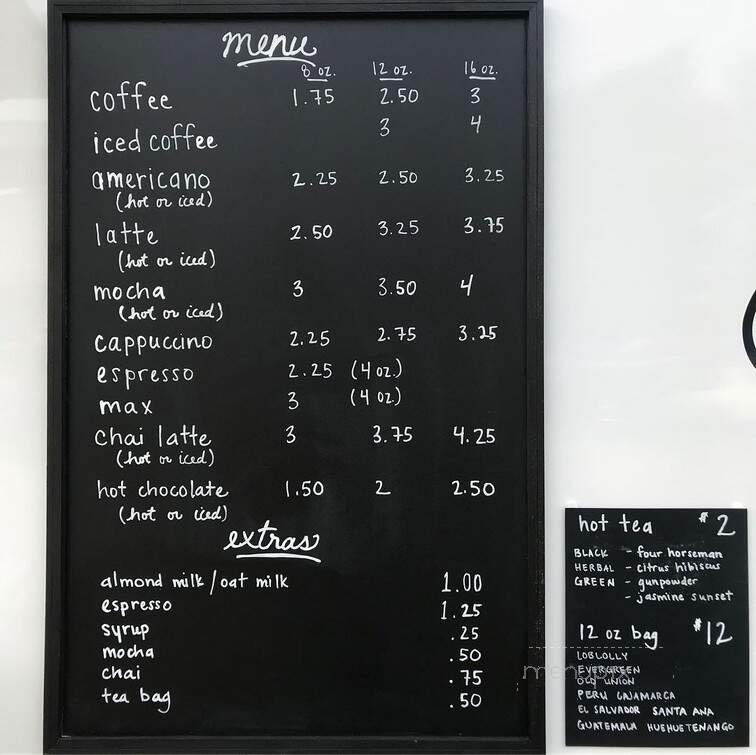 menu
8 oz. 12 oz. 16 oz.
coffee 1.75 2.50 3
iced coffee 3 4
americano 2.25 2.50 3.25
(hot or iced)
latte 2.50 3.25 3.75
(hot or iced)
mocha 3 3.50 4
(hot or iced)
cappuccino 2.25 2.75 3.25
espresso 2.25 (4 oz.)
max 3 (4 oz.)
chai latte 3 3.75 4.25
(hot or iced)
hot chocolate 1.50 2 2.50
(hot or iced)
extras
almond milk / oat milk 1.00
espresso 1.25
syrup .25
mocha .50
chai .75
tea bag .50
hot tea $2
BLACK - four horseman
HERBAL - citrus hibiscus
GREEN - gunpowder
- jasmine sunset
12 oz bag $12
LOBLOLLY
EVERGREEN
OLD UNION
PERU CAJAMARCA
EL SALVADOR SANTA ANA
GUATEMALA HUEHUETENANGO
menupix